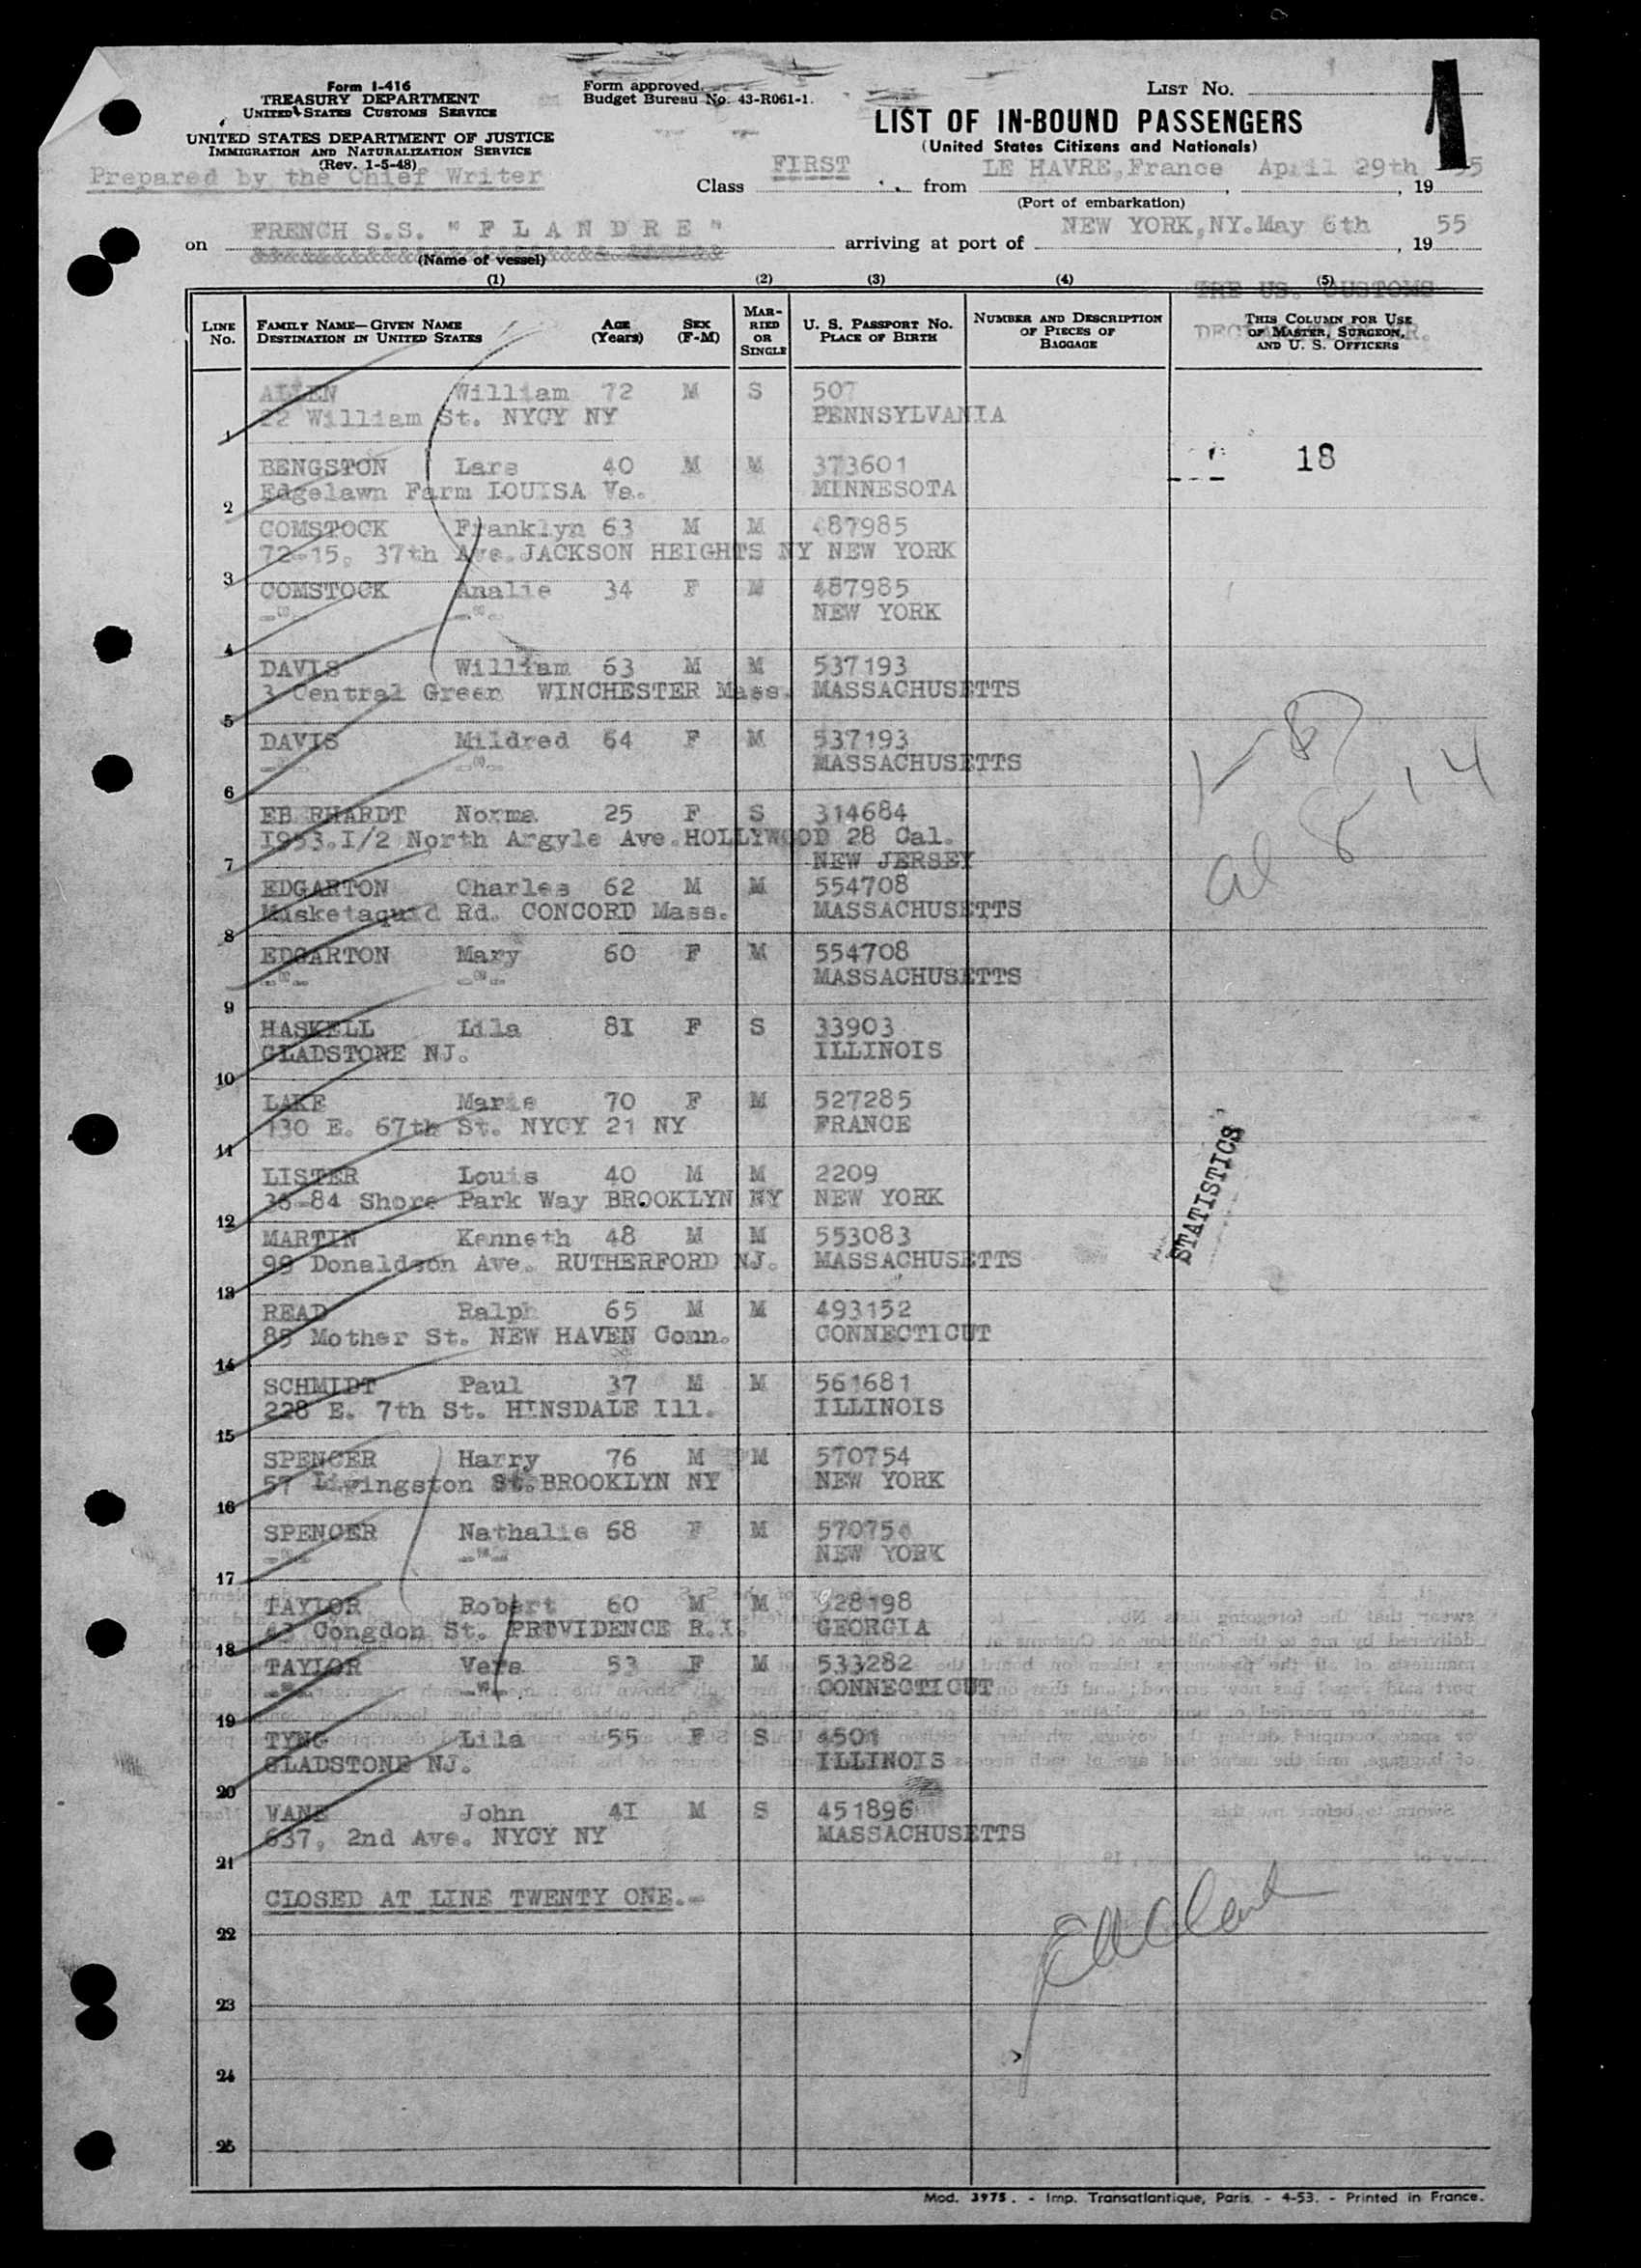 Form I-416
TREASURY DEPARTMENT
UNITED STATES CUSTOMS SERVICE
UNITED STATES DEPARTMENT OF JUSTICE
IMMIGRATION AND NATURALIZATION SERVICE
(Rev. 1-5-48)
Prepared by the Chief Writer
Form approved.
Budget Bureau No. 43-R061-1.
LIST No. 1
LIST OF IN-BOUND PASSENGERS
(United States Citizens and Nationals)
Class FIRST from LE HAVRE, France April 29th, 1955
(Port of embarkation)
on FRENCH S.S. " F L A N D R E " arriving at port of NEW YORK,NY. May 6th, 1955
(Name of vessel)
(1) (2) (3) (4) (5)
THE US. CUSTOMS
LINE No. FAMILY NAME—GIVEN NAME DESTINATION IN UNITED STATES AGE (Years) SEX (F-M) MARRIED OR SINGLE U. S. PASSPORT No. PLACE OF BIRTH NUMBER AND DESCRIPTION OF PIECES OF BAGGAGE THIS COLUMN FOR USE OF MASTER, SURGEON, AND U. S. OFFICERS
ALLEN William 72 M S 507
22 William St. NYCY NY PENNSYLVANIA
1
BENGSTON Lars 40 M M 373601 18
Edgelawn Farm LOUISA Va. MINNESOTA
2
COMSTOCK Franklyn 63 M M 487985
72-15, 37th Ave. JACKSON HEIGHTS NY NEW YORK
3
COMSTOCK Analie 34 F M 487985
-"- -"- NEW YORK
4
DAVIS William 63 M M 537193
3 Central Green WINCHESTER Mass. MASSACHUSETTS
5
DAVIS Mildred 64 F M 537193
-"- -"- MASSACHUSETTS
6
EBERHARDT Norma 25 F S 314684
1953.I/2 North Argyle Ave. HOLLYWOOD 28 Cal.
NEW JERSEY
7
EDGARTON Charles 62 M M 554708
Musketaquid Rd. CONCORD Mass. MASSACHUSETTS
8
EDGARTON Mary 60 F M 554708
-"- -"- MASSACHUSETTS
9
HASKELL Lila 8I F S 33903
GLADSTONE NJ. ILLINOIS
10
LAKE Marie 70 F M 527285
130 E. 67th St. NYCY 21 NY FRANCE
11
LISTER Louis 40 M M 2209
36-84 Shore Park Way BROOKLYN NY NEW YORK
12
MARTIN Kenneth 48 M M 553083
99 Donaldson Ave. RUTHERFORD NJ. MASSACHUSETTS
13
READ Ralph 65 M M 493152
85 Mother St. NEW HAVEN Conn. CONNECTICUT
14
SCHMIDT Paul 37 M M 561681
228 E. 7th St. HINSDALE Ill. ILLINOIS
15
SPENCER Harry 76 M M 570754
57 Livingston St. BROOKLYN NY NEW YORK
16
SPENCER Nathalie 68 F M 570754
-"- -"- NEW YORK
17
TAYLOR Robert 60 M M 928198
43 Congdon St. PROVIDENCE R.I. GEORGIA
18
TAYLOR Vera 53 F M 533282
-"- -"- CONNECTICUT
19
TYNG Lila 55 F S 4501
GLADSTONE NJ. ILLINOIS
20
VANE John 4I M S 451896
637, 2nd Ave. NYCY NY MASSACHUSETTS
21
CLOSED AT LINE TWENTY ONE.-
22
23
24
25
STATISTICS
Mod. 3975. - Imp. Transatlantique, Paris. - 4-53. - Printed in France.